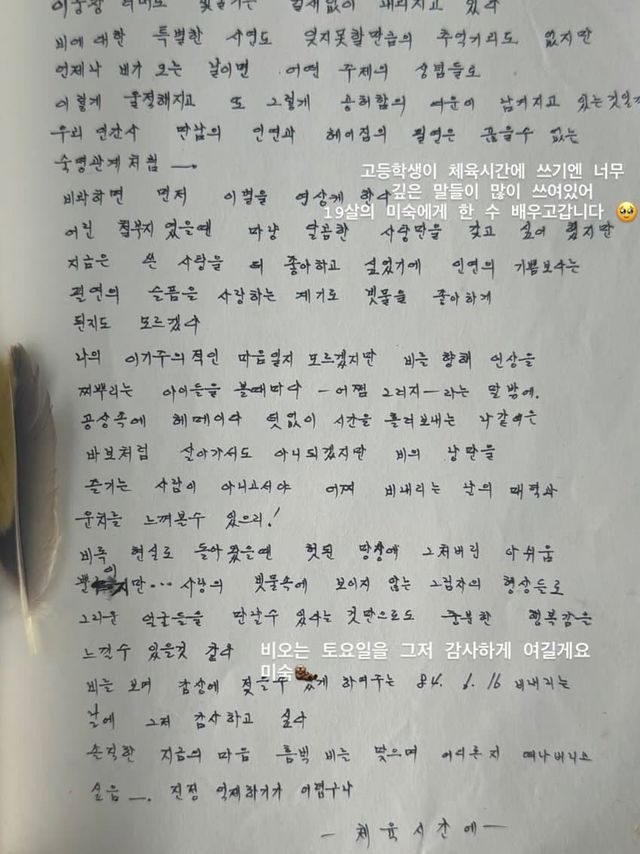 비에대한 특별한 사연도 잊지못할만큼의 추억거리도 없지만
언제나 비가 오는 날이면 어떤 주제의 상념들로
이렇게 울적해지고 또 그렇게 공허함의 여운이 남겨지고 있는것일까
우리 인간사 만남의 인연과 헤어짐의 필연은 끊을수 없는
숙명관계처럼 —.
고등학생이 체육시간에 쓰기엔 너무
깊은 말들이 많이 쓰여있어
19살의 미숙에게 한 수 배우고갑니다 🥹
비와하면 먼저 이별을 연상케 한다
어린 철부지였을땐 마냥 달콤한 사랑만을 갖고 싶어 했지만
지금은 쓴 사랑을 더 좋아하고 싶었기에 인연의 기쁨보다는
필연의 슬픔을 사랑하는 계기로 빗물을 좋아하게
된지도 모르겠다
나의 이기주의적인 마음일지 모르겠지만 비를 향해 인상을
찌뿌리는 아이들을 볼때마다 —어쩜 그러지— 라는 말밖에.
공상속에 헤메이다 덧없이 시간을 흘려보내는 나같이
바보처럼 살아가서도 아니되겠지만 비의 낭만을
즐기는 사람이 아니고서야 어찌 비내리는 날의 매력과
운치를 느껴볼수 있으리!
비록 현실로 돌아왔을땐 헛된 망상에 그쳐버린 아쉬움
뿐이지만... 사랑의 빗물속에 보이지 않는 그림자의 형상들로
그리운 얼굴들을 만날수 있다는 것만으로도 충분한 행복감을
느낄수 있을것 같다
비오는 토요일을 그저 감사하게 여길게요
미숙
비를 보며 감상에 젖을수 있게 하여주는 84. 6. 16 비내리는
날에 그저 감사하고 싶다
솔직한 지금의 마음 흠뻑 비를 맞으며 어디론지 떠나버리고
싶음 —. 진정 억제하기가 어렵구나
— 체육시간에 —